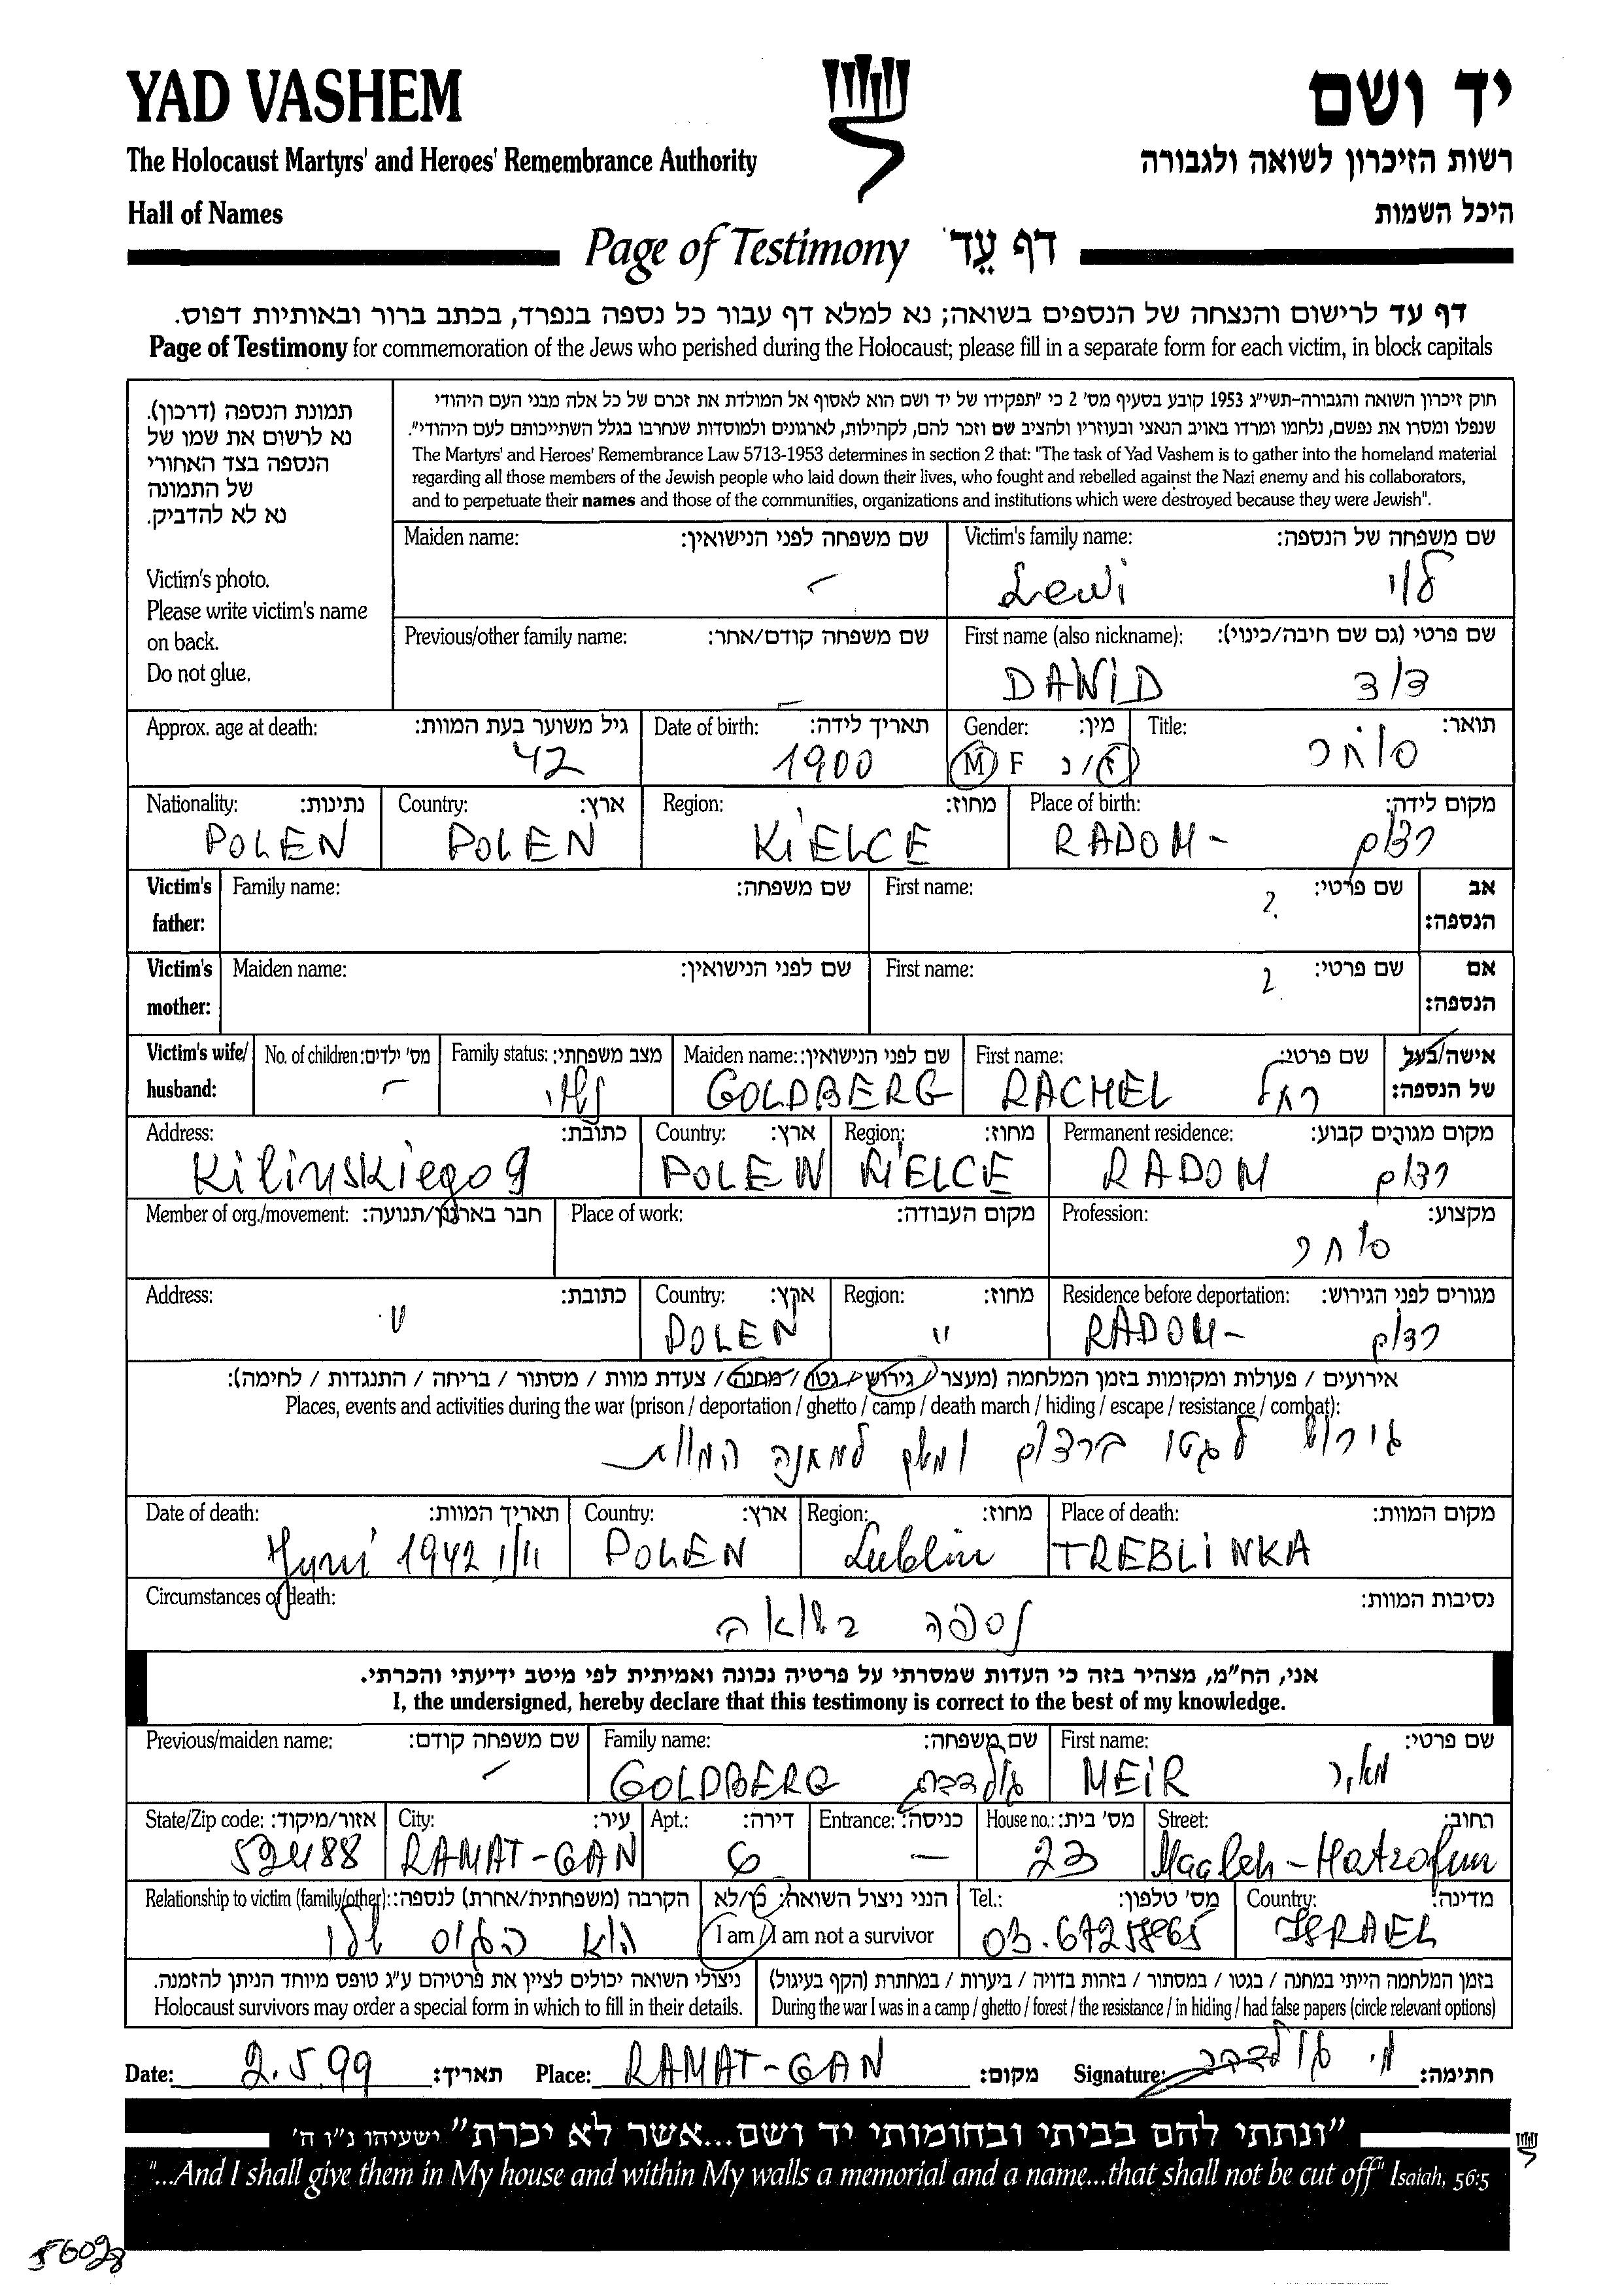 YAD VASHEM
יד ושם
The Holocaust Martyrs' and Heroes' Remembrance Authority
רשות הזיכרון לשואה ולגבורה
Hall of Names
היכל השמות
Page of Testimony דף עֵד
דף עד לרישום והנצחה של הנספים בשואה; נא למלא דף עבור כל נספה בנפרד, בכתב ברור ובאותיות דפוס.
Page of Testimony for commemoration of the Jews who perished during the Holocaust; please fill in a separate form for each victim, in block capitals
תמונת הנספה (דרכון).
נא לרשום את שמו של
הנספה בצד האחורי
של התמונה
נא לא להדביק.
Victim's photo.
Please write victim's name
on back.
Do not glue.
חוק זיכרון השואה והגבורה-תשי"ג 1953 קובע בסעיף מס' 2 כי "תפקידו של יד ושם הוא לאסוף אל המולדת את זכרם של כל אלה מבני העם היהודי
שנפלו ומסרו את נפשם, נלחמו ומרדו באויב הנאצי ובעוזריו ולהציב שם וזכר להם, לקהילות, לארגונים ולמוסדות שנחרבו בגלל השתייכותם לעם היהודי".
The Martyrs' and Heroes' Remembrance Law 5713-1953 determines in section 2 that: "The task of Yad Vashem is to gather into the homeland material
regarding all those members of the Jewish people who laid down their lives, who fought and rebelled against the Nazi enemy and his collaborators,
and to perpetuate their names and those of the communities, organizations and institutions which were destroyed because they were Jewish".
Maiden name: שם משפחה לפני הנישואין: Victim's family name: שם משפחה של הנספה:
- Lewi לוי
Previous/other family name: שם משפחה קודם/אחר: First name (also nickname): שם פרטי (גם שם חיבה/כינוי):
- DAWID דוד
Approx. age at death: גיל משוער בעת המוות: Date of birth: תאריך לידה: Gender: מין: Title: תואר:
42 1900 M F ז/נ סוחר
Nationality: נתינות: Country: ארץ: Region: מחוז: Place of birth: מקום לידה:
POLEN POLEN KIELCE RADOM- רדום
Victim's father: Family name: שם משפחה: First name: שם פרטי: ? אב הנספה:
Victim's mother: Maiden name: שם לפני הנישואין: First name: שם פרטי: ? אם הנספה:
Victim's wife/ husband: No. of children: מס' ילדים: Family status: מצב משפחתי: Maiden name: שם לפני הנישואין: First name: שם פרטי: אישה/בעל של הנספה:
- נשוי GOLDBERG RACHEL רחל
Address: כתובת: Country: ארץ: Region: מחוז: Permanent residence: מקום מגורים קבוע:
Kilinskiego 9 POLEN KIELCE RADOM רדום
Member of org./movement: חבר בארגון/תנועה: Place of work: מקום העבודה: Profession: מקצוע:
סוחר
Address: כתובת: Country: ארץ: Region: מחוז: Residence before deportation: מגורים לפני הגירוש:
" POLEN " RADOM- רדום
אירועים / פעולות ומקומות בזמן המלחמה (מעצר / גירוש / גטו / מחנה / צעדת מוות / מסתור / בריחה / התנגדות / לחימה):
Places, events and activities during the war (prison / deportation / ghetto / camp / death march / hiding / escape / resistance / combat):
גירוש לגטו ברדום ומשם למחנה המוות
Date of death: תאריך המוות: Country: ארץ: Region: מחוז: Place of death: מקום המוות:
1942 POLEN Lublin TREBLINKA
Circumstances of death: נסיבות המוות:
נספה בשואה
אני, הח"מ, מצהיר בזה כי העדות שמסרתי על פרטיה נכונה ואמיתית לפי מיטב ידיעתי והכרתי.
I, the undersigned, hereby declare that this testimony is correct to the best of my knowledge.
Previous/maiden name: שם משפחה קודם: Family name: שם משפחה: First name: שם פרטי:
- GOLDBERG גולדברג MEIR מאיר
State/Zip code: אזור/מיקוד: City: עיר: Apt.: דירה: Entrance: כניסה: House no.: מס' בית: Street: רחוב:
52488 RAMAT-GAN 6 - 23 Maaleh-Hatzofim
Relationship to victim (family/other): הקרבה (משפחתית/אחרת) לנספה: הנני ניצול השואה: כן/לא Tel.: מס' טלפון: Country: מדינה:
I am / I am not a survivor
הוא שלו 03.6725865 ISRAEL
ניצולי השואה יכולים לציין את פרטיהם ע"ג טופס מיוחד הניתן להזמנה.
Holocaust survivors may order a special form in which to fill in their details.
בזמן המלחמה הייתי במחנה / בגטו / במסתור / בזהות בדויה / ביערות / במחתרת (הקף בעיגול)
During the war I was in a camp / ghetto / forest / the resistance / in hiding / had false papers (circle relevant options)
Date: 2.5.99 תאריך: Place: RAMAT-GAN מקום: Signature: מ. גולדברג חתימה:
"ונתתי להם בביתי ובחומותי יד ושם...אשר לא יכרת" ישעיהו נ"ו ה'
"...And I shall give them in My house and within My walls a memorial and a name...that shall not be cut off" Isaiah, 56:5